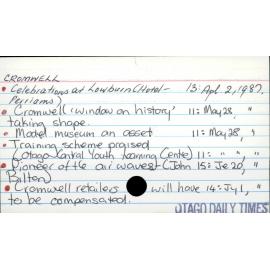 CROMWELL
• Celebrations at Lowburn (Hotel- 13: Apl 2, 1987.
Perriams)
• Cromwell 'window on history' 11: May 28, "
taking shape.
• Model museum an asset 11: May 28, "
• Training scheme praised
(Otago Central Youth Learning Centre) 11: " , "
• Pioneer of the air waves (John 15: Je 20, "
Bilton)
• Cromwell retailers will have 14: Jy 1, "
to be compensated.
OTAGO DAILY TIMES